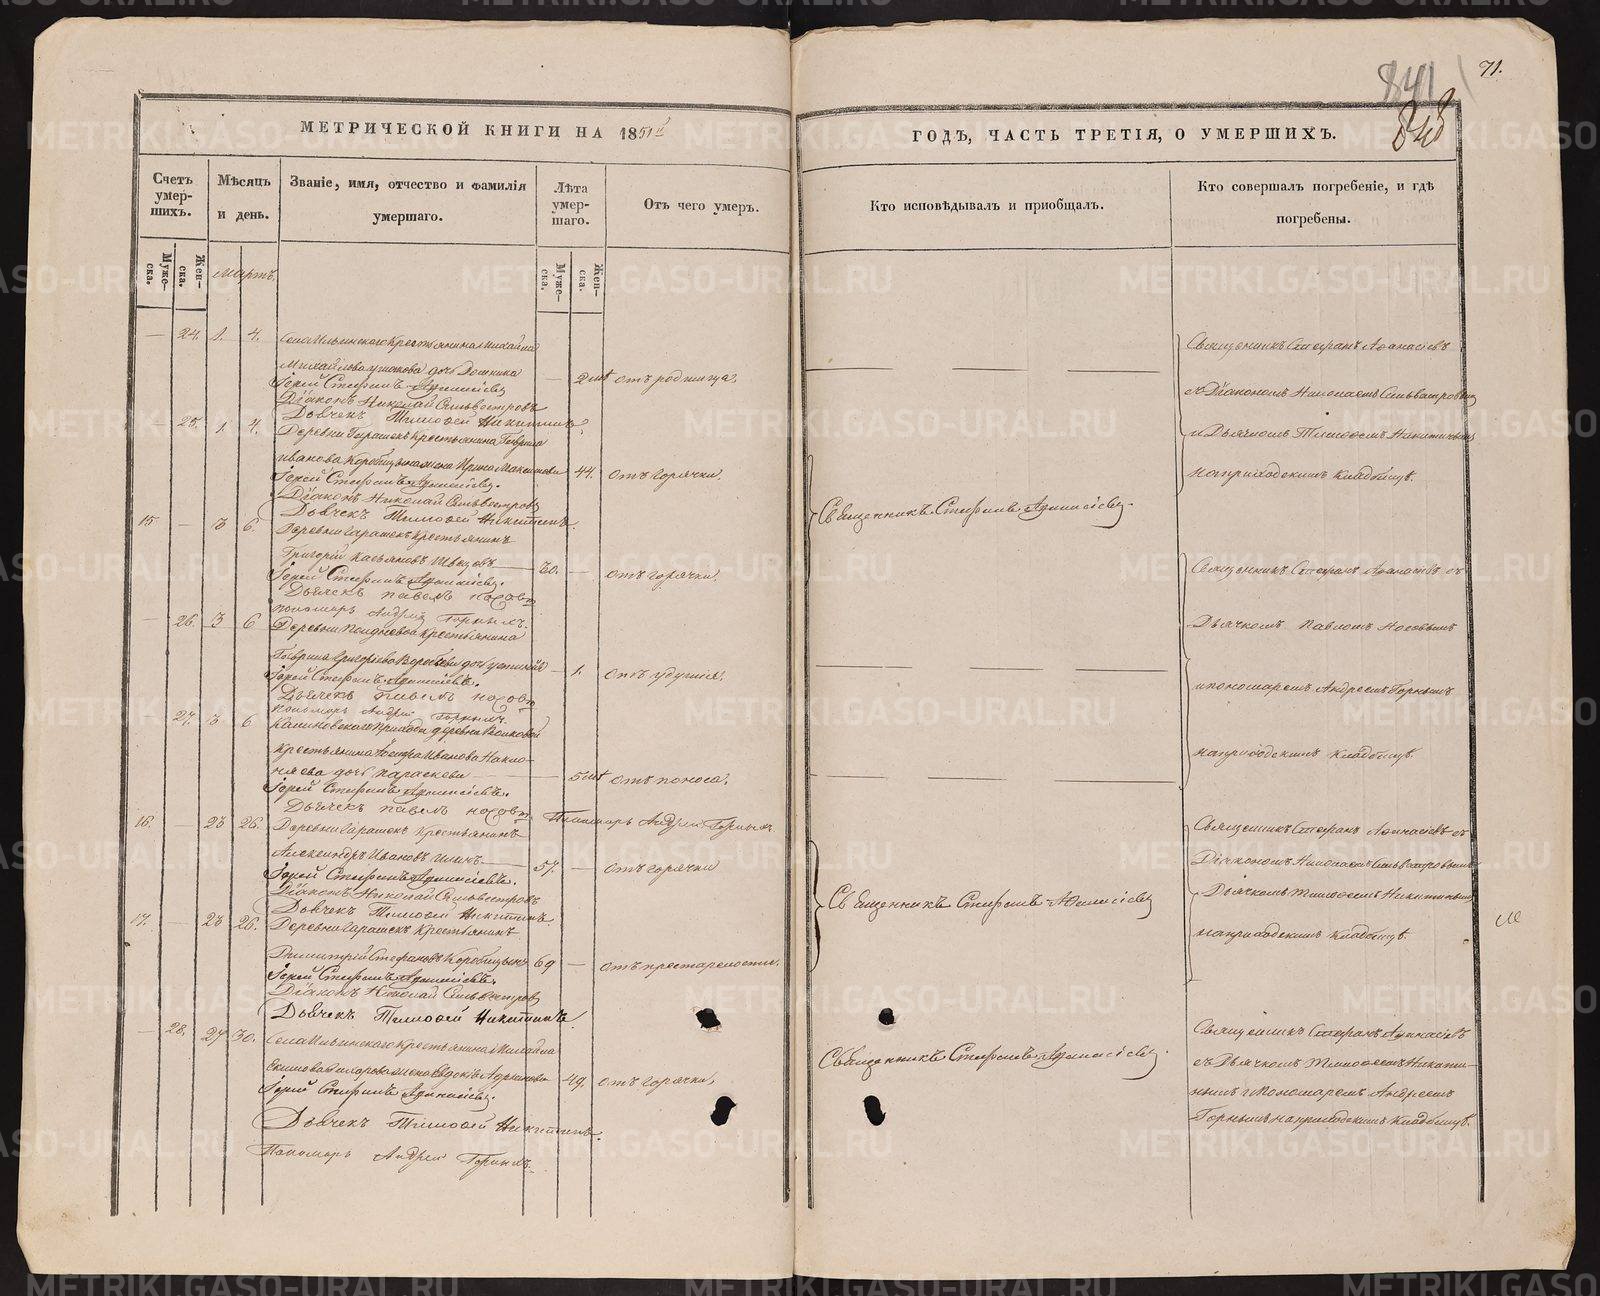 841
71.
848
МЕТРИЧЕСКОЙ КНИГИ НА 1851й
ГОДЪ, ЧАСТЬ ТРЕТІЯ, О УМЕРШИХЪ.
Счетъ умер-шихъ.
Мѣсяцъ и день.
Званіе, имя, отчество и фамилія умершаго.
Лѣта умер-шаго.
Отъ чего умеръ.
Кто исповѣдывалъ и пріобщалъ.
Кто совершалъ погребеніе, и гдѣ погребены.
Муже-ска.
Жен-ска.
Мартъ
Муже-ска.
Жен-ска.
— 24. 1. 4. Села Ильинскаго Крестьянина Михайла
Михайлова дочь Домника — 2 отъ родимца.
Іерей Стефанъ Афанасіевъ
Діаконъ Николай Сильвестровъ
Дьячекъ Тимофей Никитинъ.
— 25. 1. 4. Деревни Гарашекъ Крестьянина Гаврила
Иванова Коробицына жена Ирина Максимова — 44. отъ горячки.
Іерей Стефанъ Афанасіевъ.
Діаконъ Николай Сильвестровъ
Дьячекъ Тимофей Никитинъ.
15. — 3 6. Деревни Гарашекъ Крестьянинъ
Григорій Касьяновъ Швецовъ — отъ горячки.
Іерей Стефанъ Афанасіевъ.
Дьячекъ Павелъ
Пономарь Андрей Горныхъ.
— 26. 3 6 Деревни Крестьянина
Гаврила Григорьева дочь — 1. отъ удушія.
Іерей Стефанъ Афанасіевъ.
Дьячекъ Павелъ
Пономарь Андрей Горныхъ.
— 27. 3 6 Калиновскаго прихода деревни Волковой
Крестьянина Иванова
дочь Параскева — 5 отъ поноса.
Іерей Стефанъ Афанасіевъ.
Дьячекъ Павелъ Пономарь Андрей Горныхъ
16. — 23 26. Деревни Гарашекъ Крестьянинъ
Александръ Ивановъ — 57. — отъ горячки
Іерей Стефанъ Афанасіевъ.
Діаконъ Николай Сильвестровъ
Дьячекъ Тимофей Никитинъ.
17. — 23 26. Деревни Гарашекъ Крестьянинъ
Димитрій Стефановъ Коробицынъ 69 — отъ престарелости.
Іерей Стефанъ Афанасіевъ.
Діаконъ Николай Сильвестровъ
Дьячекъ Тимофей Никитинъ.
— 28. 27 30. Села Ильинскаго Крестьянина Михайла
жена Евдокія — 49. отъ горячки.
Іерей Стефанъ Афанасіевъ.
Дьячекъ Тимофей Никитинъ.
Пономарь Андрей Горныхъ.
Священникъ Стефанъ Афанасіевъ.
Священникъ Стефанъ Афанасіевъ
Священникъ Стефанъ Афанасіевъ.
Священникъ Стефанъ Афанасіевъ
съ Діакономъ Николаемъ Сильвестровымъ
и Дьячкомъ Тимофеемъ Никитинымъ
на приходскомъ кладбищѣ.
Священникъ Стефанъ Афанасіевъ съ
Дьячкомъ Павломъ
и пономаремъ Андреемъ Горныхъ
на приходскомъ кладбищѣ.
Священникъ Стефанъ Афанасіевъ съ
Діакономъ Николаемъ Сильвестровымъ
Дьячкомъ Тимофеемъ Никитинымъ
на приходскомъ кладбищѣ.
Священникъ Стефанъ Афанасіевъ
съ Дьячкомъ Тимофеемъ Никити-
нымъ и Пономаремъ Андреемъ
Горныхъ на приходскомъ кладбищѣ.
METRIKI.GASO-URAL.RU